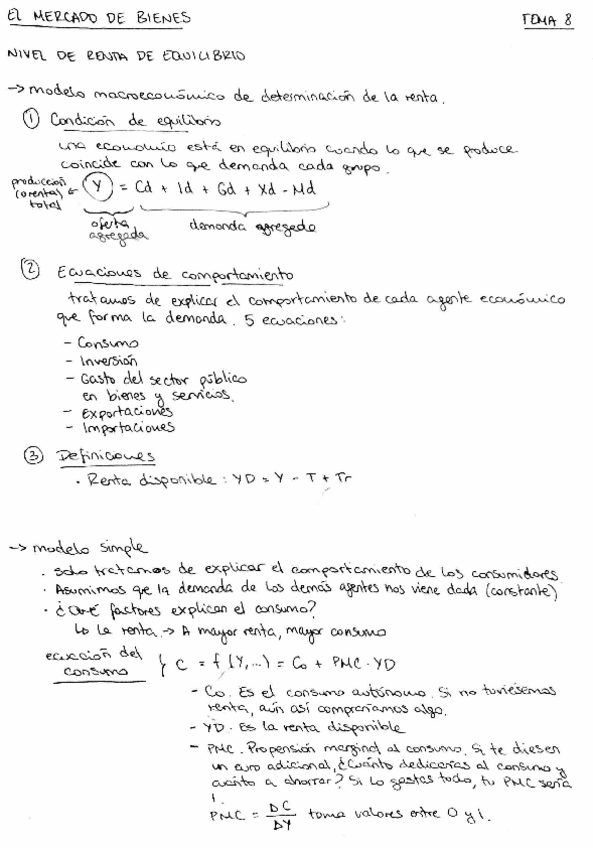 EL MERCADO DE BIENES TEMA 8
NIVEL DE RENTA DE EQUILIBRIO
→ modelo macroeconómico de determinación de la renta.
① Condición de equilibrio
una economía está en equilibrio cuando lo que se produce
coincide con lo que demanda cada grupo.
producción (o renta) total ← Y = Cd + Id + Gd + Xd - Md
oferta agregada demanda agregada
② Ecuaciones de comportamiento
tratamos de explicar el comportamiento de cada agente económico
que forma la demanda. 5 ecuaciones:
- Consumo
- Inversión
- Gasto del sector público
en bienes y servicios.
- Exportaciones
- Importaciones
③ Definiciones
· Renta disponible: YD = Y - T + Tr
→ modelo simple
· solo tratamos de explicar el comportamiento de los consumidores.
· Asumimos que la demanda de los demás agentes nos viene dada (constante)
· ¿Qué factores explican el consumo?
↳ La renta → A mayor renta, mayor consumo
ecuación del consumo { C = f (Y,...) = Co + PMC · YD
- Co. Es el consumo autónomo. Si no tuviésemos
renta, aún así compraríamos algo.
- YD. Es la renta disponible
- PMC. Propensión marginal al consumo. Si te diesen
un euro adicional, ¿Cuánto dedicarías al consumo y
cuánto a ahorrar? Si lo gastas todo, tu PMC sería
1.
PMC = ΔC/ΔY toma valores entre 0 y 1.